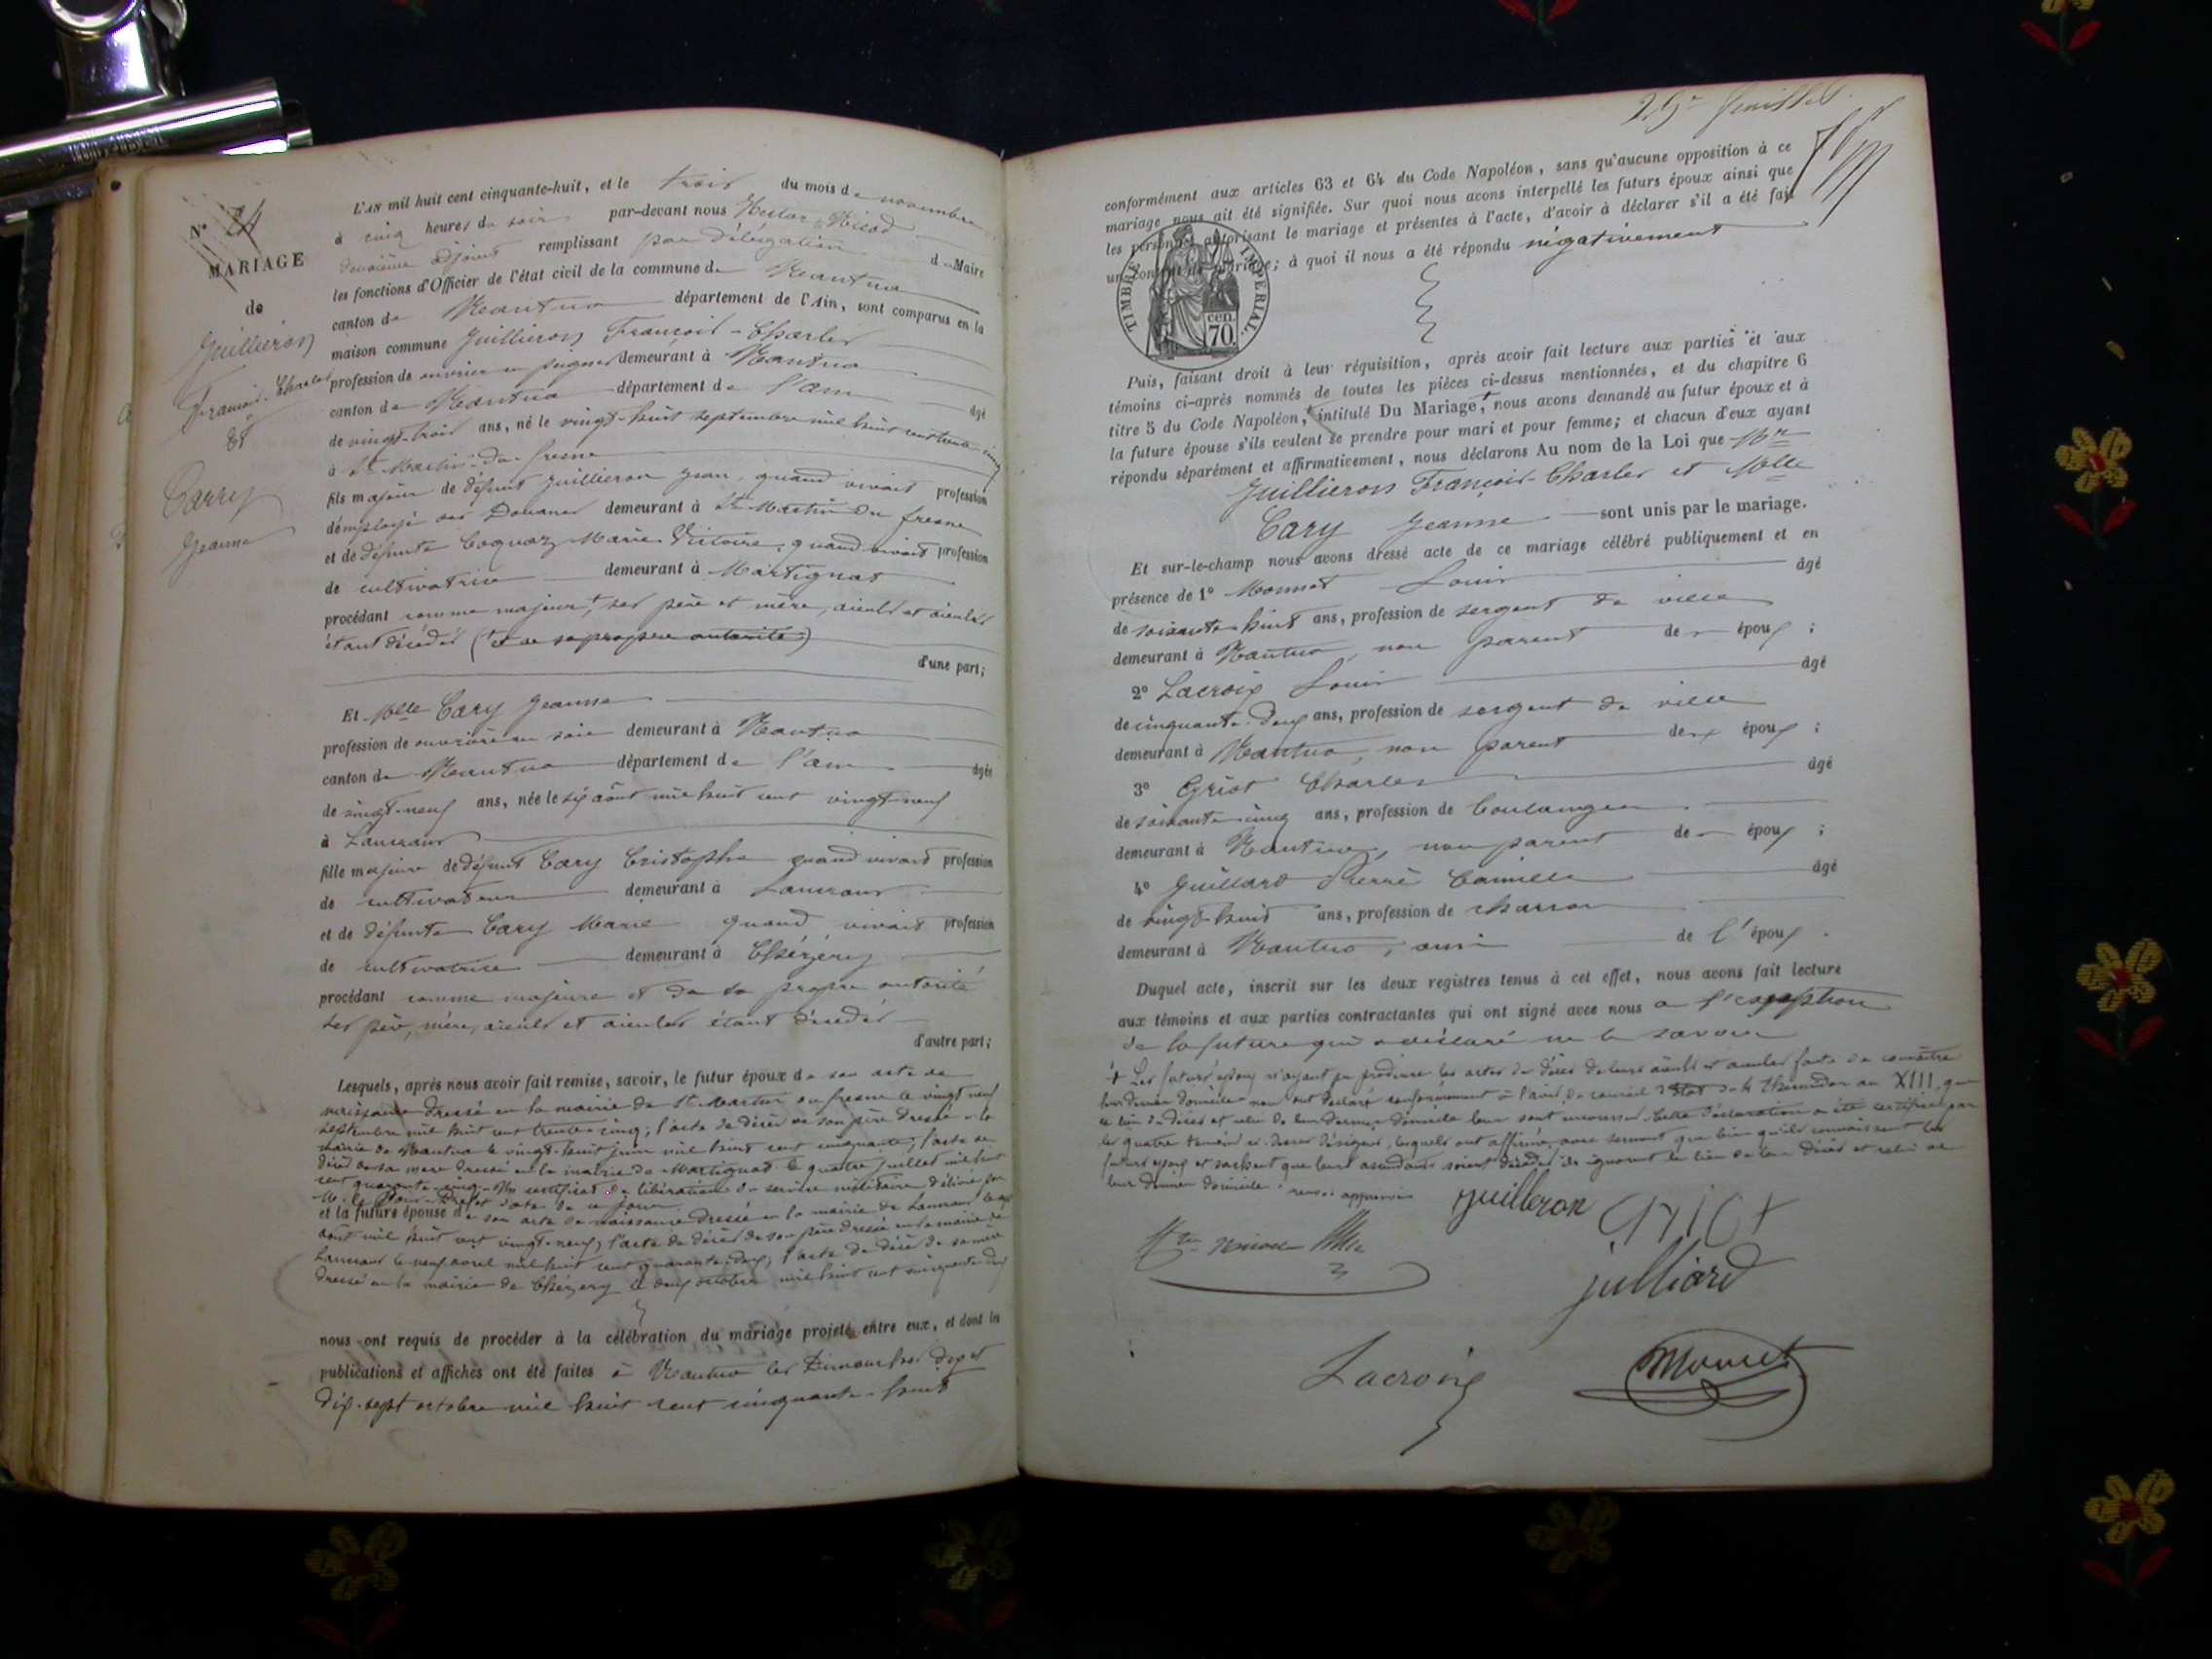 N° 24
MARIAGE
de
Guillieron
François-Charles
Et
Carry
Jeanne
L'AN mil huit cent cinquante-huit, et le trois du mois de novembre
à cinq heures du soir par-devant nous Hector Nicod
deuxième adjoint remplissant par délégation du Maire
les fonctions d'Officier de l'état civil de la commune de Nantua
canton de Nantua département de l'Ain, sont comparus en la
maison commune Guillieron François-Charles
profession de ouvrier en peignes demeurant à Nantua
canton de Nantua département de l'ain âgé
de vingt-trois ans, né le vingt-huit septembre mil huit cent trente cinq
à St Martin-du-fresne
fils majeur de défunt Guillieron Jean, quand vivait profession
d'employé des Douanes demeurant à St Martin du fresne
et de défunte Coquaz Marie Victoire, quand vivait profession
de cultivatrice demeurant à Martignat
procédant comme majeur + ses père et mère, aieuls et aieules
étant décédés (+ et de sa propre autorité)
d'une part;
Et Melle Cary Jeanne
profession de ouvrière en soie demeurant à Nantua
canton de Nantua département de l'ain âgée
de vingt-neuf ans, née le six août mil huit cent vingt-neuf
à Lancrans
fille majeure de défunt Cary Cristophe quand vivait profession
de cultivateur demeurant à Lancrans
et de défunte Cary Marie quand vivait profession
de cultivatrice demeurant à Chézery
procédant comme majeure et de sa propre autorité
ses père, mère, aieuls et aieules étant décédés
d'autre part;
Lesquels, après nous avoir fait remise, savoir, le futur époux de son acte de
naissance dressé en la mairie de St Martin du fresne le vingt neuf
septembre mil huit cent trente-cinq; l'acte de décès de son père dressé à la
mairie de Nantua le vingt-huit juin mil huit cent cinquante; l'acte de
décès de sa mère dressé en la mairie de Martignat le quatre juillet mil huit
cent quarante-cinq. Un certificat de libération du service militaire délivré par
M. le Sous-Préfet date de ce jour
et la future épouse de son acte de naissance dressé en la mairie de Lancrans le
août mil huit cent vingt-neuf; l'acte de décès de son père dressé en la mairie de
Lancrans le neuf avril mil huit cent quarante-deux; l'acte de décès de sa mère
dressé en la mairie de Chézery le deux octobre mil huit cent cinquante deux
nous ont requis de procéder à la célébration du mariage projeté entre eux, et dont les
publications et affiches ont été faites à Nantua les Dimanches dix et
dix-sept octobre mil huit cent cinquante-huit
25e feuillet
conformément aux articles 63 et 64 du Code Napoléon, sans qu'aucune opposition à ce
mariage nous ait été signifiée. Sur quoi nous avons interpellé les futurs époux ainsi que
les personnes autorisant le mariage et présentes à l'acte, d'avoir à déclarer s'il a été fait
un contrat de mariage; à quoi il nous a été répondu négativement
TIMBRE IMPERIAL.
70 cen.
Puis, faisant droit à leur réquisition, après avoir fait lecture aux parties et aux
témoins ci-après nommés de toutes les pièces ci-dessus mentionnées, et du chapitre 6
titre 5 du Code Napoléon, intitulé Du Mariage, + nous avons demandé au futur époux et à
la future épouse s'ils veulent se prendre pour mari et pour femme; et chacun d'eux ayant
répondu séparément et affirmativement, nous déclarons Au nom de la Loi que Mr
Guillieron François-Charles et Melle
Cary Jeanne sont unis par le mariage.
Et sur-le-champ nous avons dressé acte de ce mariage célébré publiquement et en
présence de 1° Monnet Louis âgé
de soixante huit ans, profession de sergent de ville
demeurant à Nantua, non parent des époux ;
2° Lacroix Louis âgé
de cinquante-deux ans, profession de sergent de ville
demeurant à Nantua, non parent des époux ;
3° Griot Charles âgé
de soixante-cinq ans, profession de boulanger
demeurant à Nantua, non parent des époux ;
4° Guillard Pierre Camille âgé
de vingt-huit ans, profession de charron
demeurant à Nantua, ami de l'époux.
Duquel acte, inscrit sur les deux registres tenus à cet effet, nous avons fait lecture
aux témoins et aux parties contractantes qui ont signé avec nous à l'exception
de la future qui a déclaré ne le savoir
+ Les futurs époux n'ayant pu produire les actes de décès de leurs aieuls et aieules faute de connaître
leur dernier domicile nous ont déclaré conformément à l'avis du conseil d'Etat du 4 Thermidor an XIII, que
le lieu de décès et celui de leur dernier domicile leur sont inconnus. Cette déclaration a été certifiée par
les quatre témoins ci-dessus désignés, lesquels ont affirmé, avec serment que bien qu'ils connaissent les
futurs époux et sachent que leurs ascendants soient décédés ils ignorent le lieu de leur décès et celui de
leur dernier domicile. renvoi approuvé
guilleron Griot
julliard
Lacroix Monnet